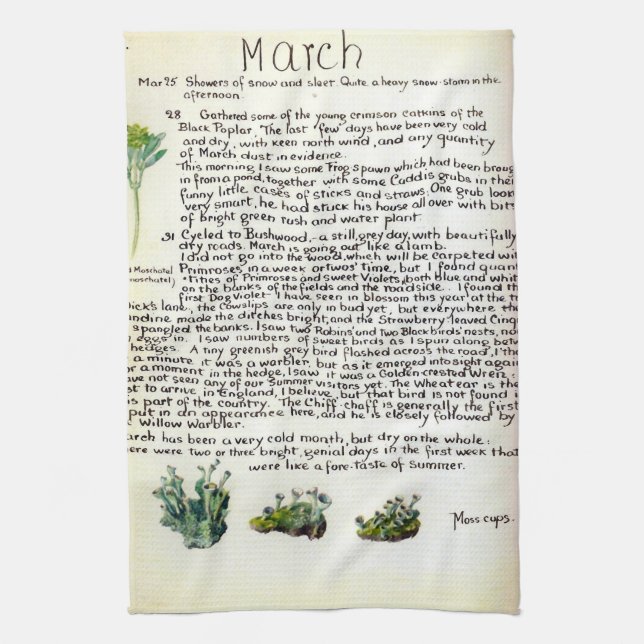 March
Mar 25 Showers of snow and sleet. Quite a heavy snow-storm in the
afternoon.
28 Gathered some of the young crimson catkins of the
Black Poplar. The last few days have been very cold
and dry, with keen north wind, and any quantity
of March dust in evidence.
This morning I saw some Frog spawn which had been broug
in from a pond, together with some Caddis grubs in their
funny little cases of sticks and straws. One grub look
very smart, he had stuck his house all over with bits
of bright green rush and water plant.
31 Cycled to Bushwood,- a still, grey day, with beautifully
dry roads. March is going out like a lamb.
I did not go into the wood, which will be carpeted wit
Moschatel Primroses in a week or twos' time, but I found quan
moschatel) tities of Primroses and sweet Violets, both blue and whit
on the banks of the fields and the roadside.. I found th
first Dog Violet I have seen in blossom this year at the t
ick's lane, the Cowslips are only in bud yet, but everywhere th
andine made the ditches bright, and the Strawberry-leaved Cinq
s spangled the banks. I saw two Robins' and two Blackbirds' nests,
eggs in. I saw numbers of sweet birds as I spun along betw
hedges. A tiny greenish grey bird flashed across the road, I th
a minute it was a warbler, but as it emerged into sight again
or a moment in the hedge, I saw it was a Golden-crested Wren:
ave not seen any of our Summer visitors yet. The Wheatear is the
st to arrive, in England, I believe, but that bird is not found i
is part of the country. The Chiff-chaff is generally the first
put in an appearance here, and he is closely followed by
Willow Warbler.
arch has been a very cold month, but dry on the whole:
ere were two or three bright, genial days in the first week that
were like a fore-taste of Summer.
Moss cups.